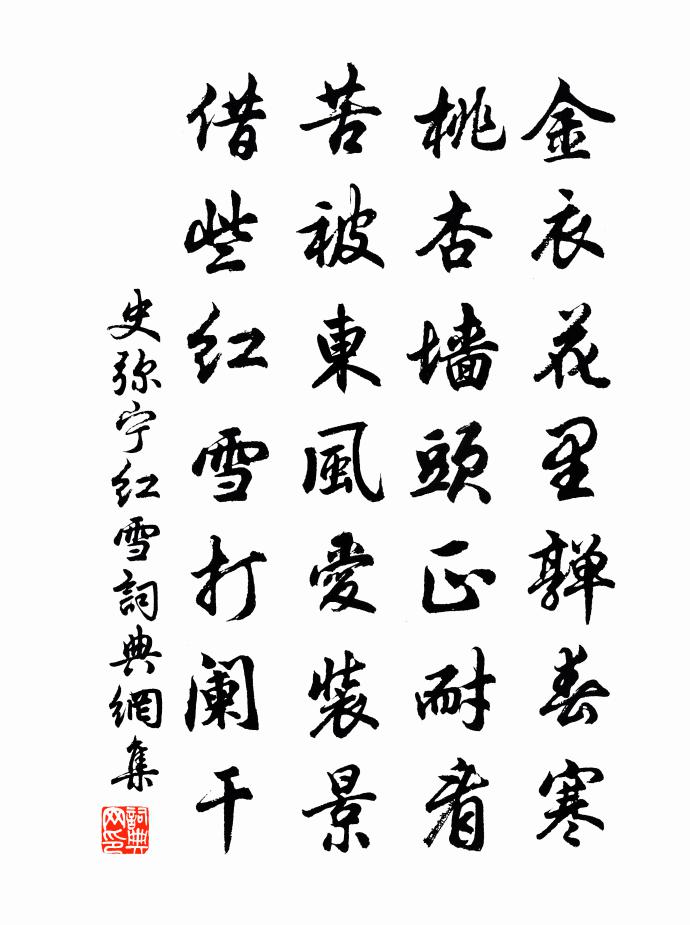 金衣花里亸春寒
桃杏墙頭正耐看
苦被東風愛裝景
借些红雪打阑干
史弥宁红雪詞典網集
詞典网印